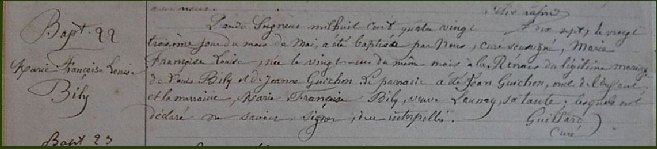 Bapt. 22
Marie Françoise Louise
Bily
L'an du Seigneur mil huit cent quatre vingt dix sept, le vingt
troisième jour du mois de Mai, a été baptisée par Nous, curé soussigné, Marie
Françoise Louise, née le vingt du même mois à la Renais du légitime mariage
de Louis Bily et de Jeanne Guichon. Le parrain a été Jean Guichon, oncle de l'enfant
et la marraine, Marie Françoise Bily, veuve Launay, sa tante, lesquels ont
déclaré ne savoir signer, de ce interpellés.
Guillard
Curé
Bapt 23